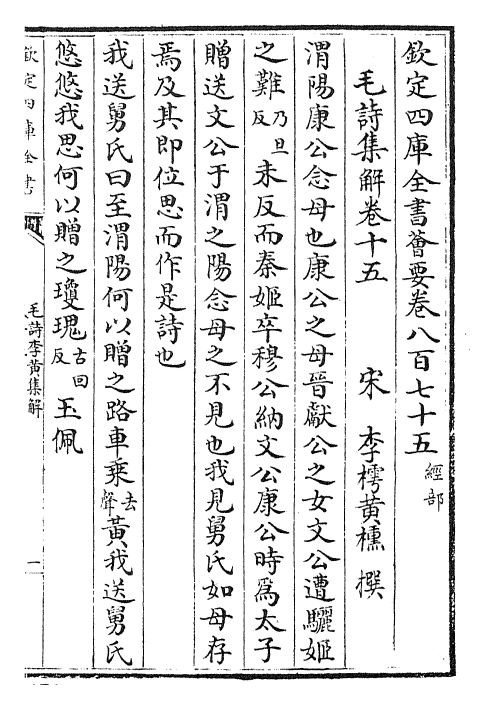 欽定四庫全書薈要卷八百七十五 經部
毛詩集解卷十五 宋 李樗黃櫄 撰
渭陽康公念母也康公之母晉獻公之女文公遭驪姬
之難乃旦反未反而秦姬卒穆公納文公康公時為太子
贈送文公于渭之陽念母之不見也我見舅氏如母存
焉及其即位思而作是詩也
我送舅氏曰至渭陽何以贈之路車乘去聲黃我送舅氏
悠悠我思何以贈之瓊瑰古回反玉佩
欽定四庫全書
毛詩李黃集解
一